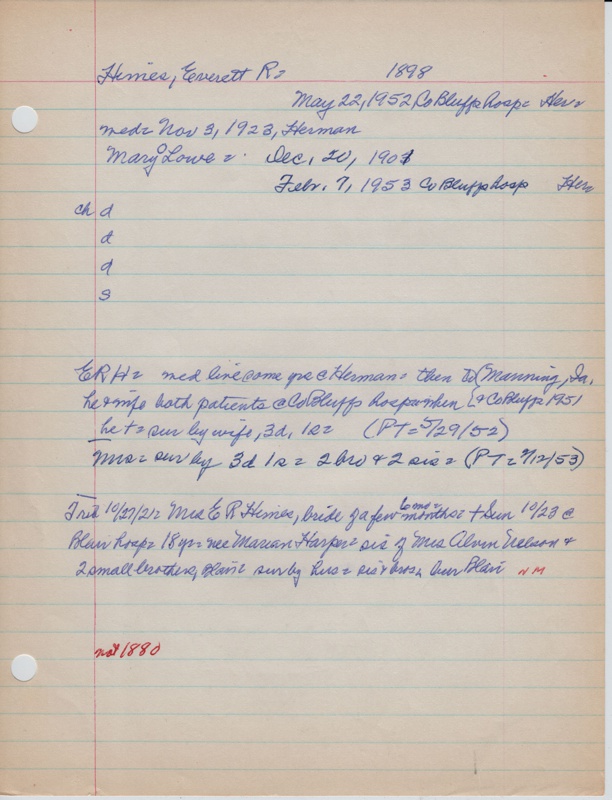 Himes, Everett R= 1898
May 22, 1952 Co Bluffs hosp= Her=
med= Nov 3, 1923, Herman
Mary Lowe = Dec. 20, 1901
Febr. 7, 1953 Co Bluffs hosp Her
ch d
d
d
s
ERH= med live some yrs @ Herman= then to {Manning, Ia,
he & wife both patients @ Co Bluffs hosp when {& Co Bluffs 1951
he + = sur by wife, 3d, 1s= (PT= 5/29/52)
Mrs= sur by 3d 1s= 2 bro & 2 sis= (PT= 2/12/53)
Trib 10/27/21= Mrs E R Himes, bride of a few 6 mo= months= + Sun 10/23 @
Blair hosp= 18 yr= nee Marian Harper= sis of Mrs Alvin Nelson &
2 small brothers, Blair= sur by hus= sis & bros, bur Blair NM
not 1880